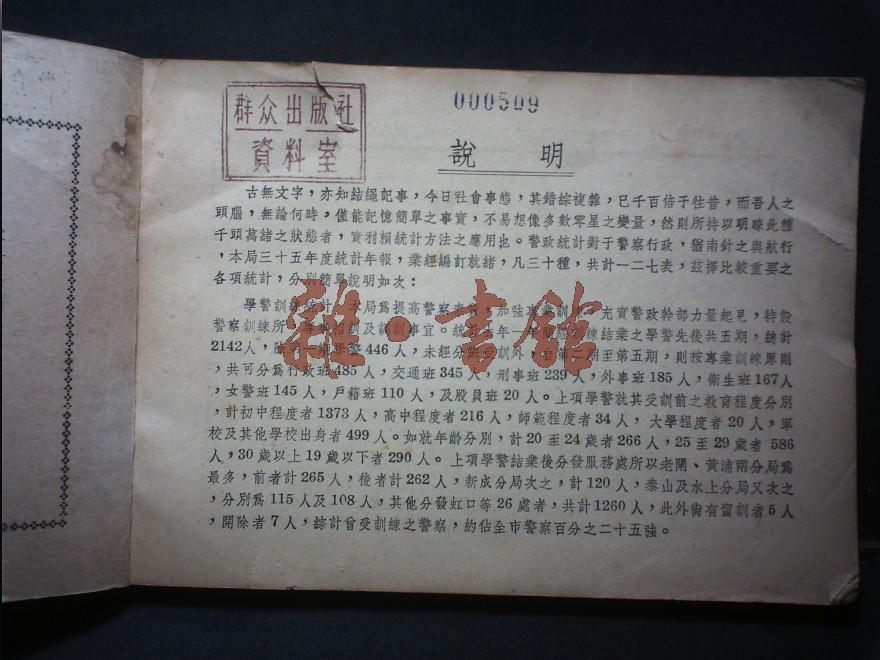 群众出版社
資料室
000509
說明
古無文字，亦知結繩記事，今日社會事態，其錯綜複雜，已千百倍于往昔，而吾人之
頭腦，無論何時，僅能記憶簡單之事實，不易想像多數零星之變量，然則所持以明瞭此種
千頭萬緒之狀態者，實利賴統計方法之應用也。警政統計對于警察行政，猶南針之與航行
，本局三十五年度統計年報，業經編訂就緒，凡三十種，共計一二七表，茲擇比較重要之
各項統計，分別簡單說明如次：
學警訓練統計 本局爲提高警察素質，加強專業訓練，充實警政幹部力量起見，特設
警察訓練所，招訓及調訓事宜。統計本年一年訓練結業之學警先後共五期，總計
2142人，除第一期學警446人，未經分班受訓外，自第二期至第五期，則按專業訓練原則
，共可分爲行政班485人，交通班345人，刑事班239人，外事班185人，衛生班167人
，女警班145人，戶籍班110人，及股員班20人。上項學警就其受訓前之教育程度分別
，計初中程度者1373人，高中程度者216人，師範程度者34人，大學程度者20人，軍
校及其他學校出身者499人。如就年齡分別，計20至24歲者266人，25至29歲者586
人，30歲以上19歲以下者290人。上項學警結業後分發服務處所以老閘、黃浦兩分局爲
最多，前者計265人，後者計262人，新成分局次之，計120人，泰山及水上分局又次之
，分別爲115人及108人，其他分發虹口等26處者，共計1260人，此外尚有留訓者5人
，開除者7人，綜計曾受訓練之警察，約佔全市警察百分之二十五強。
雜·書館